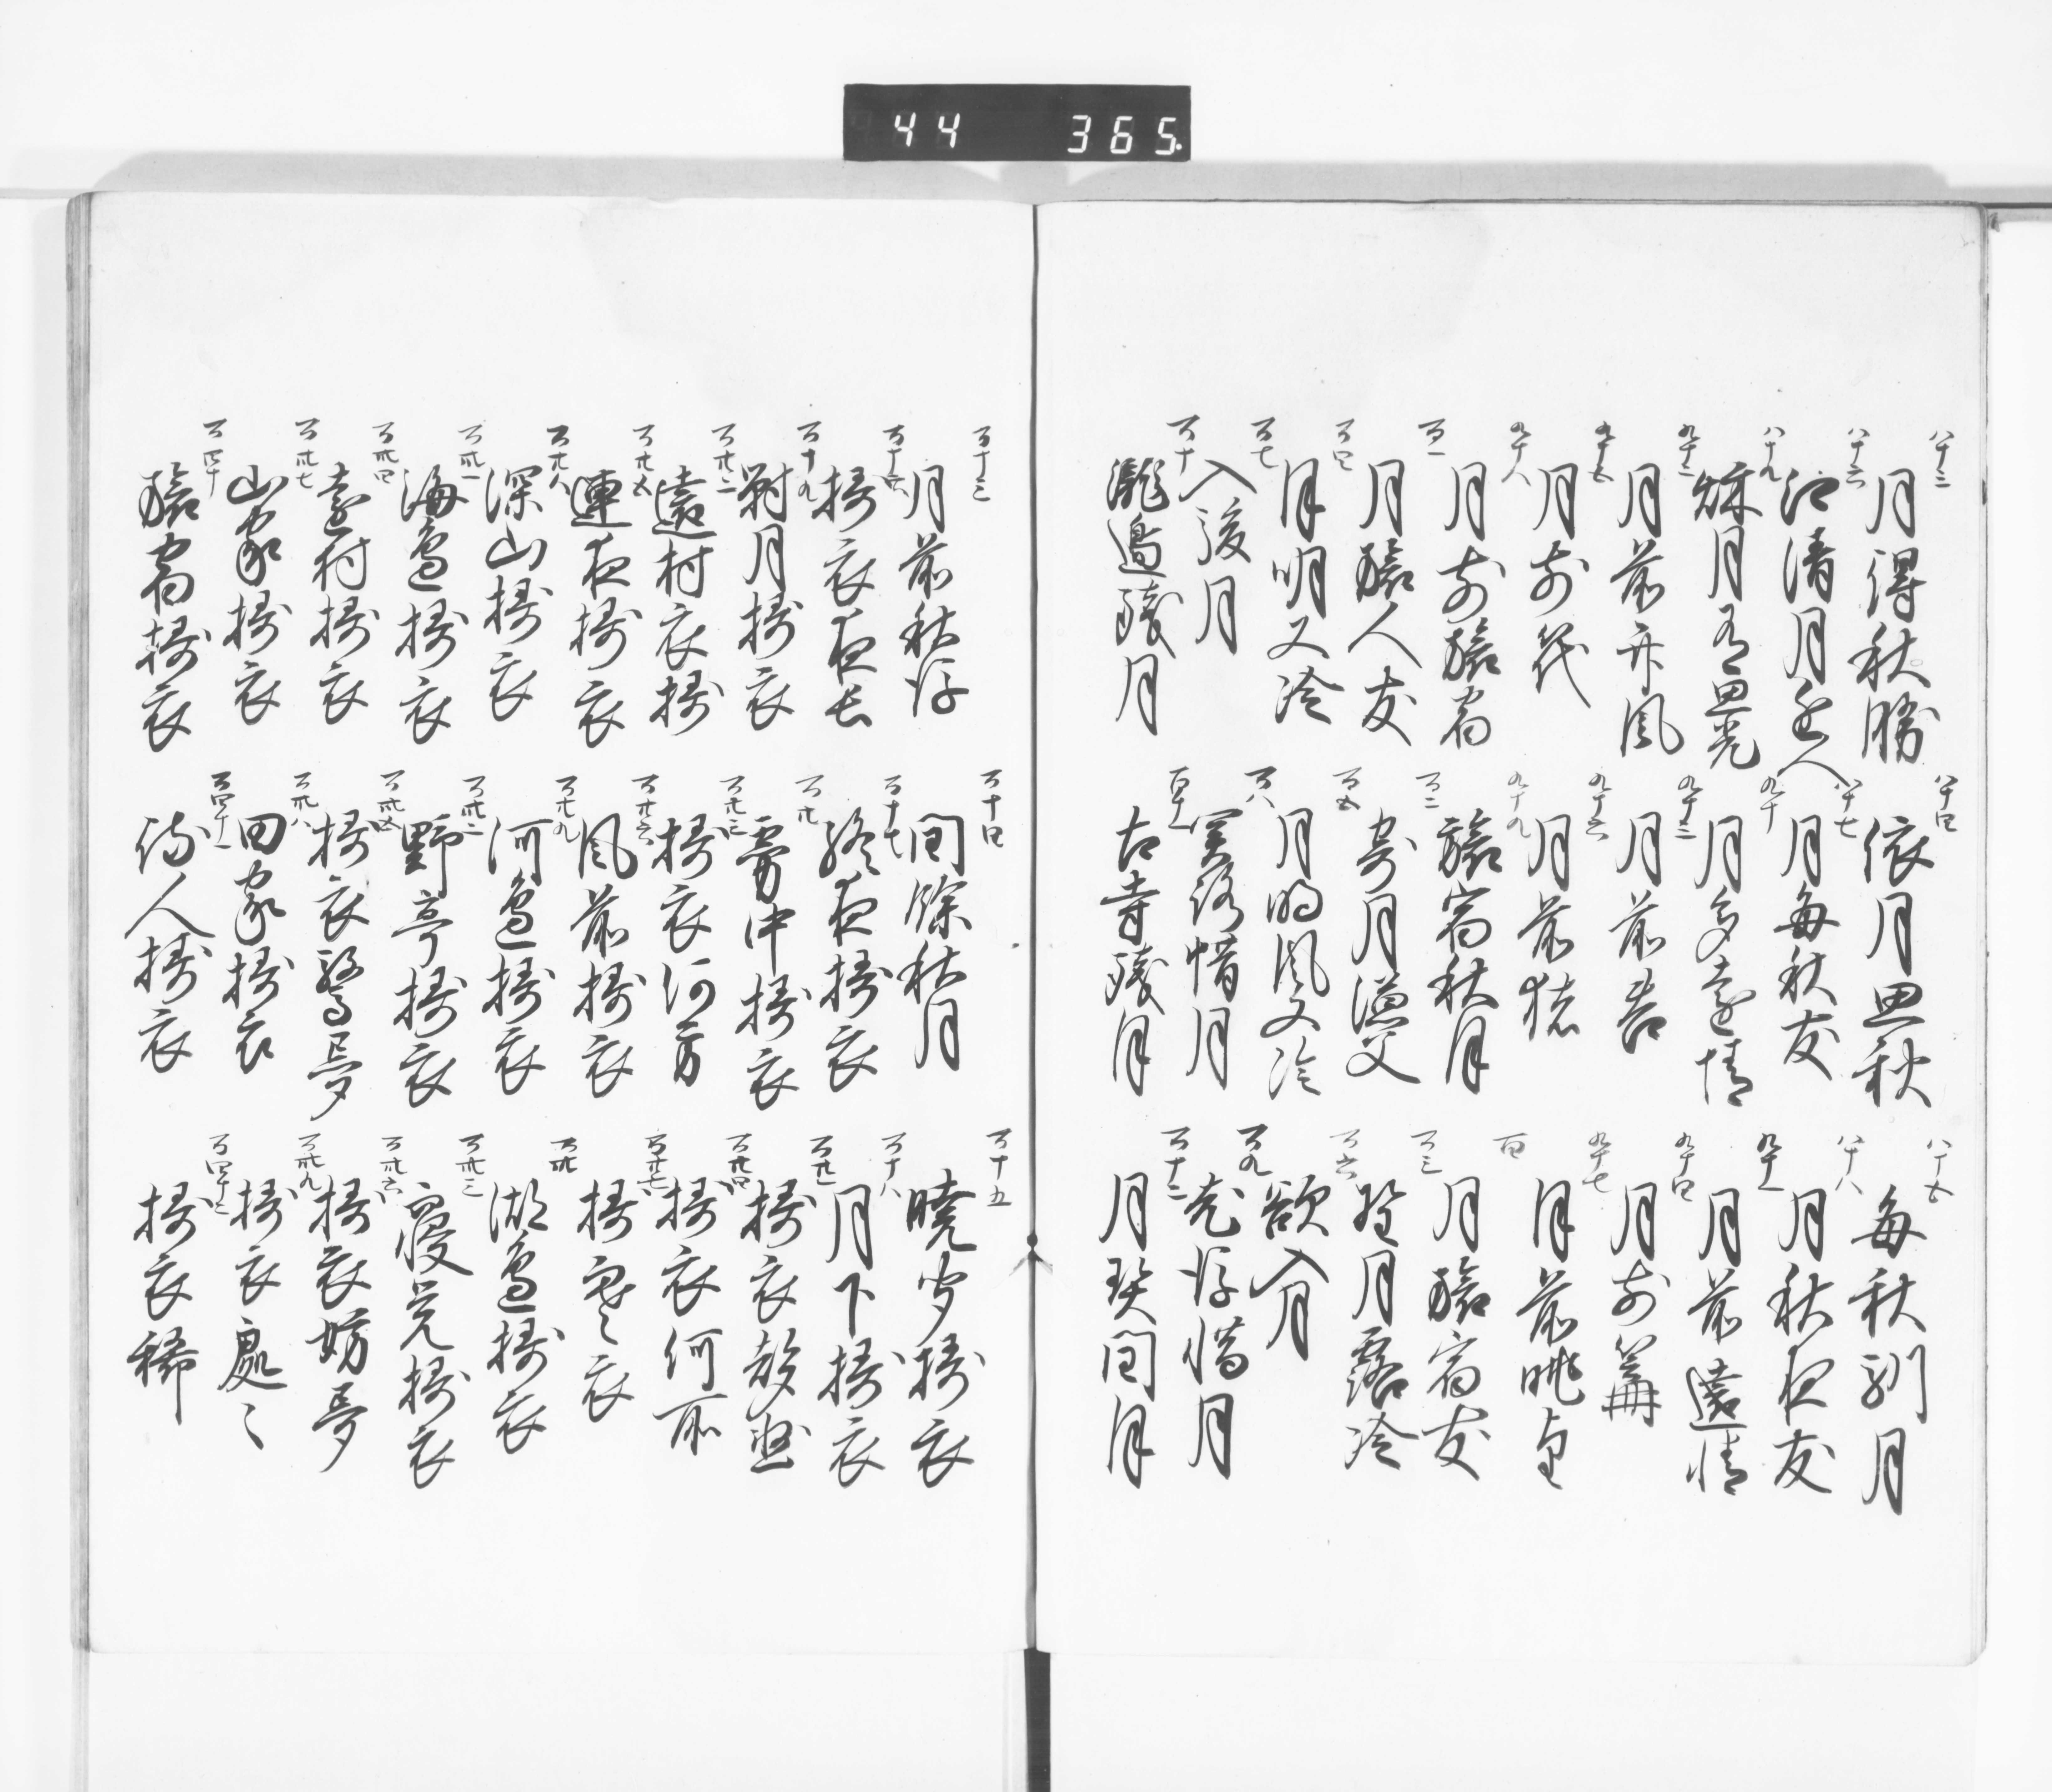 44 365.
八十三 月得秋勝
八十四 依月思秋
八十五 毎秋馴月
八十六 江清月近人
八十七 月毎秋友
八十八 月秋夜友
八十九 秋月有思光
九十 月多遠情
九十一 月前遠情
九十二 月前竹風
九十三 月前
九十四 月前
九十五 月前
九十六 月前
九十七 月前眺望
九十八 月前旅宿
九十九 旅宿秋月
百 月旅宿友
百一 月旅人友
百二 寄月漁父
百三 野月露冷
百四 月明又冷
百五 月明風又冷
百六 欲入月
百七 入後月
百八 惜月
百九 老後惜月
百十 瀧辺残月
百十一 古寺残月
百十二 月契同月
百十三 月前秋浮
百十四 閑隙秋月
百十五 暁更擣衣
百十六 擣衣夜長
百十七 終夜擣衣
百十八 月下擣衣
百十九 対月擣衣
百廿 雲中擣衣
百廿一 擣衣幽
百廿二 遠村衣擣
百廿三 擣衣何方
百廿四 擣衣何所
百廿五 連夜擣衣
百廿六 風前擣衣
百廿七 擣寒衣
百廿八 深山擣衣
百廿九 河辺擣衣
百卅 湖辺擣衣
百卅一 海辺擣衣
百卅二 野亭擣衣
百卅三 寝覚擣衣
百卅四 遠村擣衣
百卅五 擣衣驚夢
百卅六 擣衣妨夢
百卅七 山家擣衣
百卅八 田家擣衣
百卅九 擣衣処々
百四十 旅宿擣衣
百四十一 待人擣衣
百四十二 擣衣稀